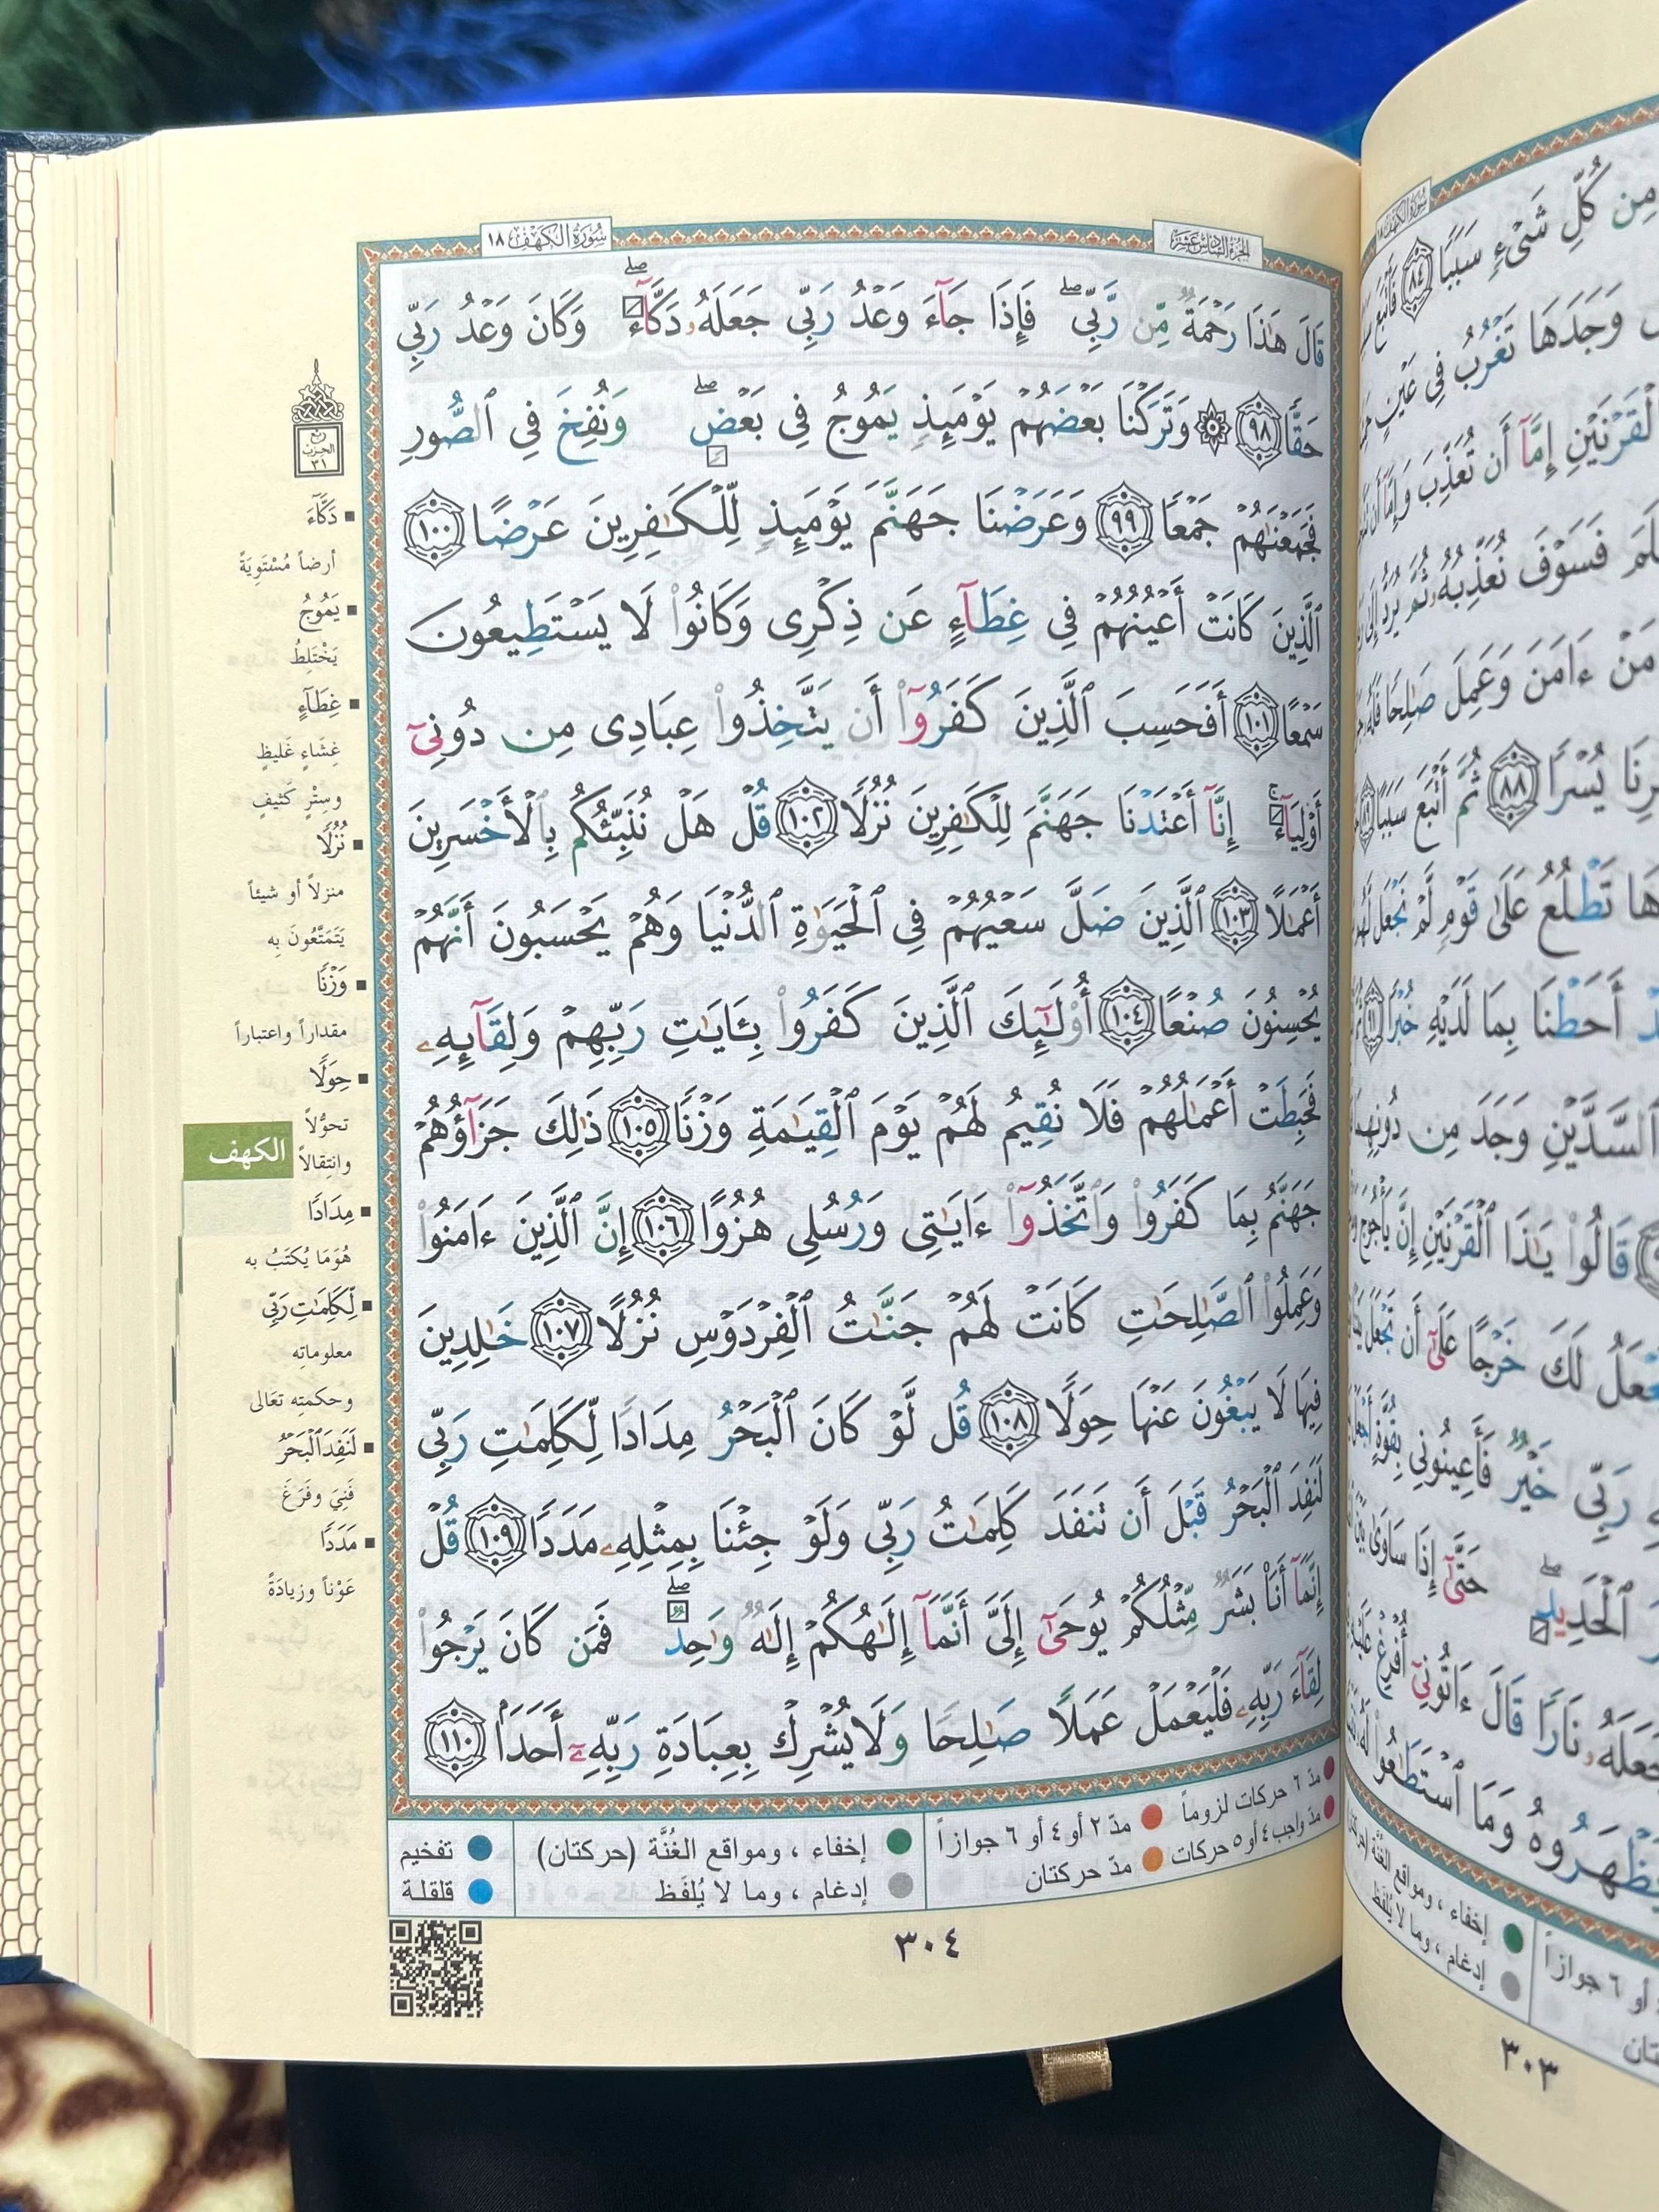 الجزء السادس عشر
سورة الكهف ١٨
قَالَ هَٰذَا رَحْمَةٌ مِّن رَّبِّى ۖ فَإِذَا جَآءَ وَعْدُ رَبِّى جَعَلَهُۥ دَكَّآءَ ۖ وَكَانَ وَعْدُ رَبِّى
حَقًّا ﴿٩٨﴾ ۞ وَتَرَكْنَا بَعْضَهُمْ يَوْمَئِذٍ يَمُوجُ فِى بَعْضٍ ۖ وَنُفِخَ فِى ٱلصُّورِ
فَجَمَعْنَٰهُمْ جَمْعًا ﴿٩٩﴾ وَعَرَضْنَا جَهَنَّمَ يَوْمَئِذٍ لِّلْكَٰفِرِينَ عَرْضًا ﴿١٠٠﴾
ٱلَّذِينَ كَانَتْ أَعْيُنُهُمْ فِى غِطَآءٍ عَن ذِكْرِى وَكَانُوا۟ لَا يَسْتَطِيعُونَ
سَمْعًا ﴿١٠١﴾ أَفَحَسِبَ ٱلَّذِينَ كَفَرُوٓا۟ أَن يَتَّخِذُوا۟ عِبَادِى مِن دُونِىٓ
أَوْلِيَآءَ ۚ إِنَّآ أَعْتَدْنَا جَهَنَّمَ لِلْكَٰفِرِينَ نُزُلًا ﴿١٠٢﴾ قُلْ هَلْ نُنَبِّئُكُم بِٱلْأَخْسَرِينَ
أَعْمَٰلًا ﴿١٠٣﴾ ٱلَّذِينَ ضَلَّ سَعْيُهُمْ فِى ٱلْحَيَوٰةِ ٱلدُّنْيَا وَهُمْ يَحْسَبُونَ أَنَّهُمْ
يُحْسِنُونَ صُنْعًا ﴿١٠٤﴾ أُو۟لَٰٓئِكَ ٱلَّذِينَ كَفَرُوا۟ بِـَٔايَٰتِ رَبِّهِمْ وَلِقَآئِهِۦ
فَحَبِطَتْ أَعْمَٰلُهُمْ فَلَا نُقِيمُ لَهُمْ يَوْمَ ٱلْقِيَٰمَةِ وَزْنًا ﴿١٠٥﴾ ذَٰلِكَ جَزَآؤُهُمْ
جَهَنَّمُ بِمَا كَفَرُوا۟ وَٱتَّخَذُوٓا۟ ءَايَٰتِى وَرُسُلِى هُزُوًا ﴿١٠٦﴾ إِنَّ ٱلَّذِينَ ءَامَنُوا۟
وَعَمِلُوا۟ ٱلصَّٰلِحَٰتِ كَانَتْ لَهُمْ جَنَّٰتُ ٱلْفِرْدَوْسِ نُزُلًا ﴿١٠٧﴾ خَٰلِدِينَ
فِيهَا لَا يَبْغُونَ عَنْهَا حِوَلًا ﴿١٠٨﴾ قُل لَّوْ كَانَ ٱلْبَحْرُ مِدَادًا لِّكَلِمَٰتِ رَبِّى
لَنَفِدَ ٱلْبَحْرُ قَبْلَ أَن تَنفَدَ كَلِمَٰتُ رَبِّى وَلَوْ جِئْنَا بِمِثْلِهِۦ مَدَدًا ﴿١٠٩﴾ قُلْ
إِنَّمَآ أَنَا۠ بَشَرٌ مِّثْلُكُمْ يُوحَىٰٓ إِلَىَّ أَنَّمَآ إِلَٰهُكُمْ إِلَٰهٌ وَٰحِدٌ ۖ فَمَن كَانَ يَرْجُوا۟
لِقَآءَ رَبِّهِۦ فَلْيَعْمَلْ عَمَلًا صَٰلِحًا وَلَا يُشْرِكْ بِعِبَادَةِ رَبِّهِۦٓ أَحَدًۢا ﴿١١٠﴾
الحزب
٣١
دَكَّآءَ
أرضاً مُسْتَوِيَةً
يَمُوجُ
يَخْتَلِطُ
غِطَآءٍ
غِشَاءٍ غَليظٍ
وسِتْرٍ كَثيفٍ
نُزُلًا
منزلاً أو شيئاً
يَتَمَتَّعُونَ بِهِ
وَزْنًا
مقداراً واعتباراً
حِوَلًا
تحوُّلاً
وانتِقالاً
الكهف
مِدَادًا
هُوَ مَا يُكتَبُ به
لِّكَلِمَٰتِ رَبِّى
معلوماتِه
وحكمتِه تعَالى
لَنَفِدَ ٱلْبَحْرُ
فَنِيَ وفَرَغَ
مَدَدًا
عَوْناً وزيادَةً
مدّ ٦ حركات لزوماً
مدّ ٢ أو ٤ أو ٦ جوازاً
إخفاء ، ومواقع الغُنَّة (حركتان)
تفخيم
مدّ واجب ٤ أو ٥ حركات
مدّ حركتان
إدغام ، وما لا يُلفَظ
قلقلة
٣٠٤
مِن كُلِّ شَىْءٍ سَبَبًا ﴿٨٤﴾ فَأَتْبَعَ
وَجَدَهَا تَغْرُبُ فِى عَيْنٍ
ٱلْقَرْنَيْنِ إِمَّآ أَن تُعَذِّبَ وَإِمَّآ أَن
فَسَوْفَ نُعَذِّبُهُۥ ثُمَّ يُرَدُّ إِلَىٰ
مَنْ ءَامَنَ وَعَمِلَ صَٰلِحًا فَلَهُۥ
يُسْرًا ﴿٨٨﴾ ثُمَّ أَتْبَعَ سَبَبًا ﴿٨٩﴾
تَطْلُعُ عَلَىٰ قَوْمٍ لَّمْ نَجْعَل لَّهُم
أَحَطْنَا بِمَا لَدَيْهِ خُبْرًا ﴿٩١﴾
ٱلسَّدَّيْنِ وَجَدَ مِن دُونِهِمَا
قَالُوا۟ يَٰذَا ٱلْقَرْنَيْنِ إِنَّ يَأْجُوجَ
نَجْعَلُ لَكَ خَرْجًا عَلَىٰٓ أَن تَجْعَلَ
رَبِّى خَيْرٌ فَأَعِينُونِى بِقُوَّةٍ أَجْعَلْ
ٱلْحَدِيدِ ۖ حَتَّىٰٓ إِذَا سَاوَىٰ بَيْنَ
جَعَلَهُۥ نَارًا قَالَ ءَاتُونِىٓ أُفْرِغْ عَلَيْهِ
يَظْهَرُوهُ وَمَا ٱسْتَطَٰعُوا۟ لَهُۥ
إخفاء ، ومواقع الغُنَّة
إدغام ، وما لا يُلفَظ
أو ٦ جوازاً
٣٠٣